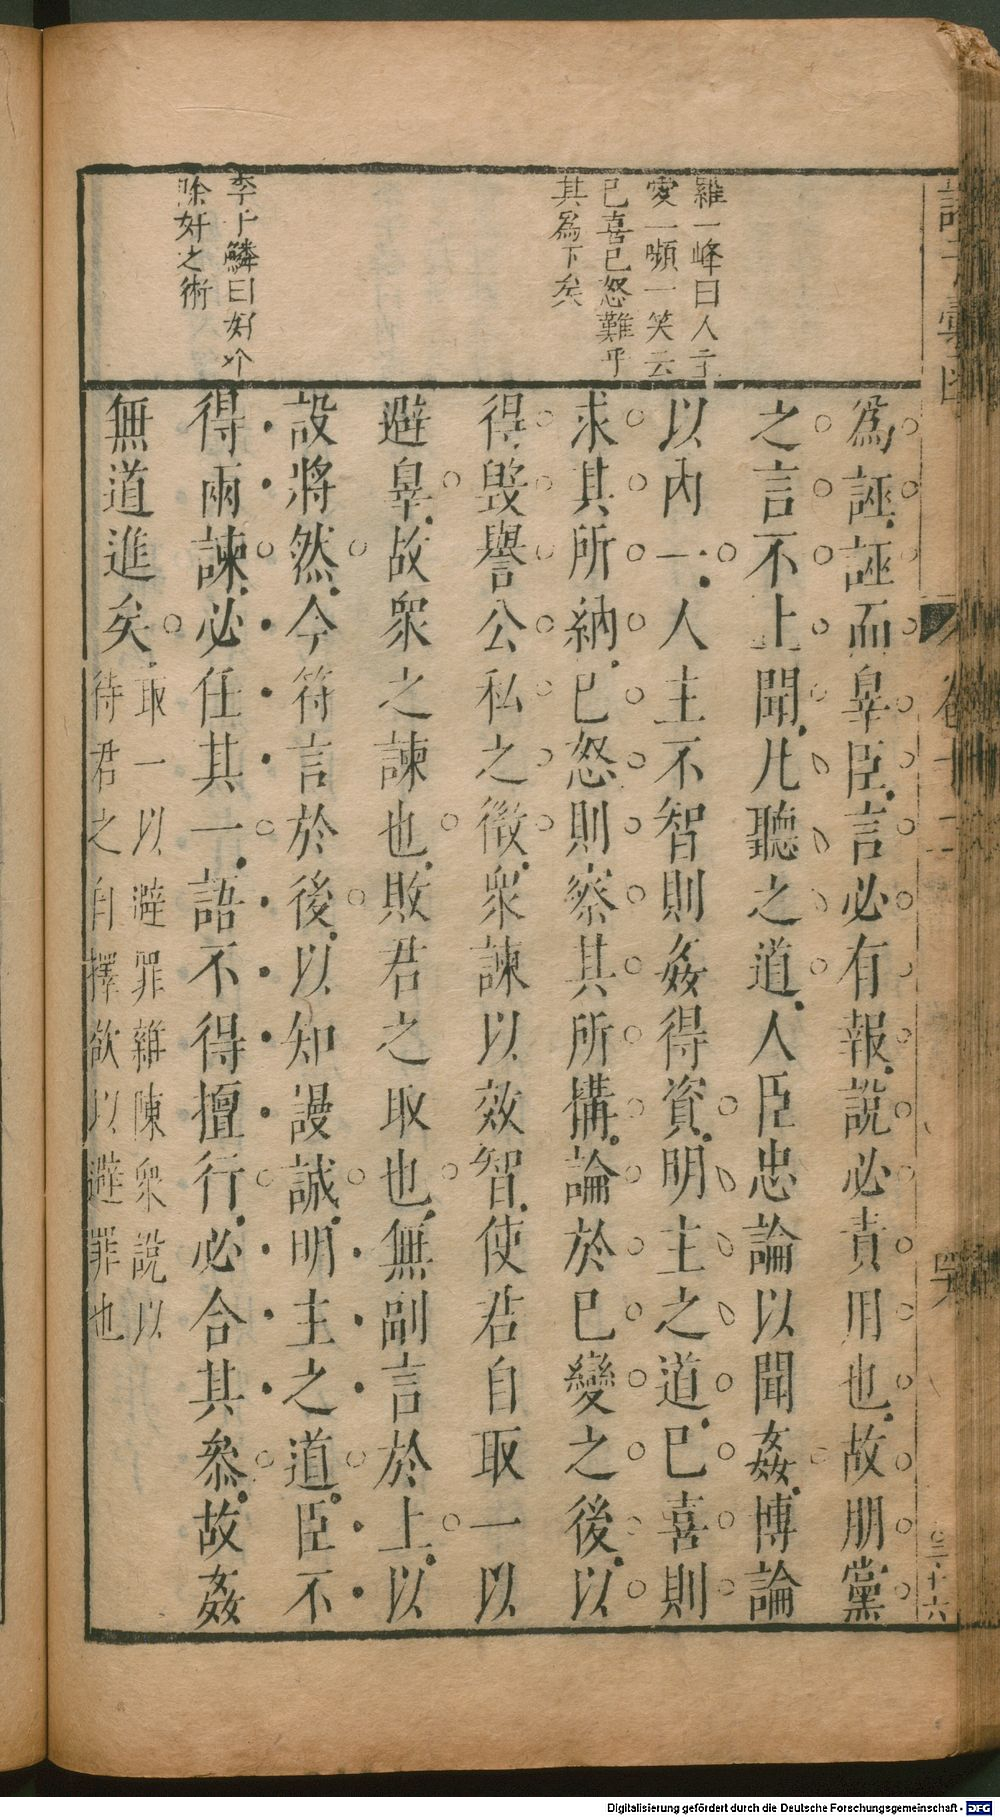 羅一峰曰人主
愛一嚬一笑云
已喜已怒難乎
其爲下矣
李于鱗曰好个
除奸之術
爲誣誣而辠臣言必有報說必責用也故朋黨
之言不上聞凡聽之道人臣忠論以聞姦博論
以內一人主不智則姦得資明主之道已喜則
求其所納已怒則察其所搆論於已變之後以
得毀譽公私之徵衆諫以效智使君自取一以
避辠故衆之諫也敗君之取也無副言於上以
設將然今符言於後以知謾誠明主之道臣不
得兩諫必任其一語不得擅行必合其叅故姦
無道進矣
取一以避罪雜陳衆說以
待君之自擇欲以避罪也
卷十二
三十六
Digitalisierung gefördert durch die Deutsche Forschungsgemeinschaft - DFG